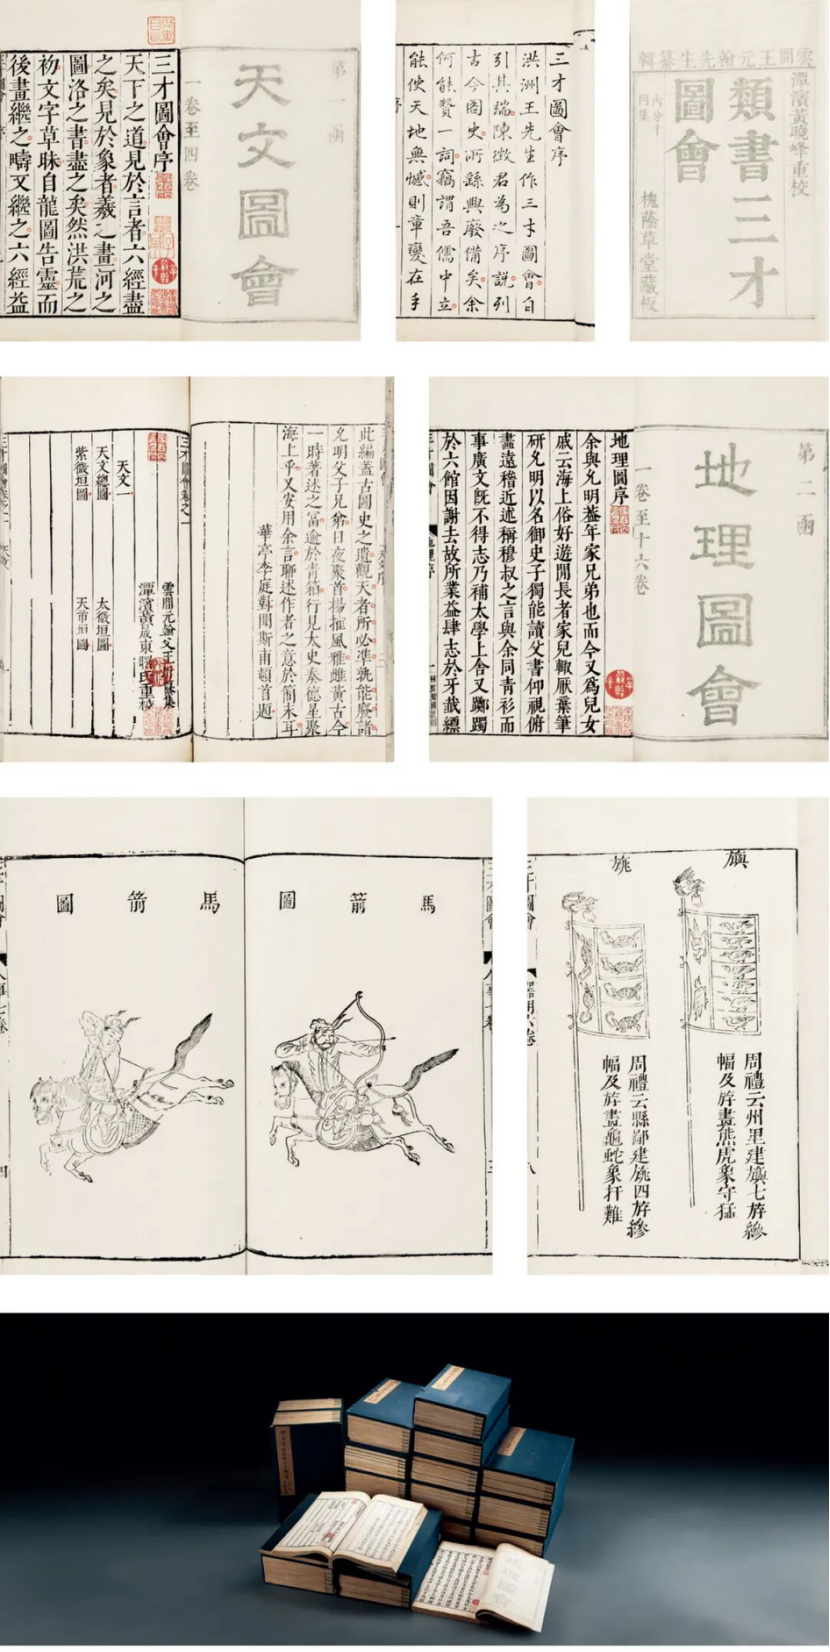 第一函
天文圖會
一卷至四卷
三才圖會序
天下之道見於言者六經盡
之矣見於象者羲之畫河之
圖洛之書盡之矣然洪荒之
初文字草昧自龍圖告靈而
後畫繼之疇又繼之六經益
三才圖會序
洪洲王先生作三才圖會自
引其端陳徵君為之序說列
古今圖史所繇興廢備矣余
何能贊一詞竊謂吾儒中立
能使天地無憾則葦變在手
雲間王元翰先生纂輯
潭濱黃曉峰重校
類書三才
圖會
內分十四集
槐蔭草堂藏板
此編蓋古圖史之遺觀天者所必準孰能廢諸
允明父子兄弟日夜聚首揚搉風雅雌黃古今
一時著述之富逾於青箱行見太史奏德星聚
海上乎又安用余言聊述作者之意於簡末耳
華亭李庭對閱斯甫頓首題
三才圖會卷之一
雲間元翰父王
潭濱黃晟東曙氏重校
天文一
天文總圖 太微垣圖
紫微垣圖 天市垣圖
第二函
地理圖會
一卷至十六卷
地理圖序
余與允明益年家兄弟也而今又爲兒女
戚云海上俗好遊閒長者家兒輙厭葉筆
研允明以名御史子獨能讀父書仰視俯
畫遠稽近述稱穆叔之言與余同青衫而
事廣文旣不得志乃補太學上舍又躑躅
於六館因謝去故所業益肆志於牙載縹
馬箭圖
馬箭圖
旟
周禮云州里建旟七斿縿
幅及斿畫熊虎象守猛
旐
周禮云縣鄙建旐四斿縿
幅及斿畫龜蛇象扞難
地理圖會